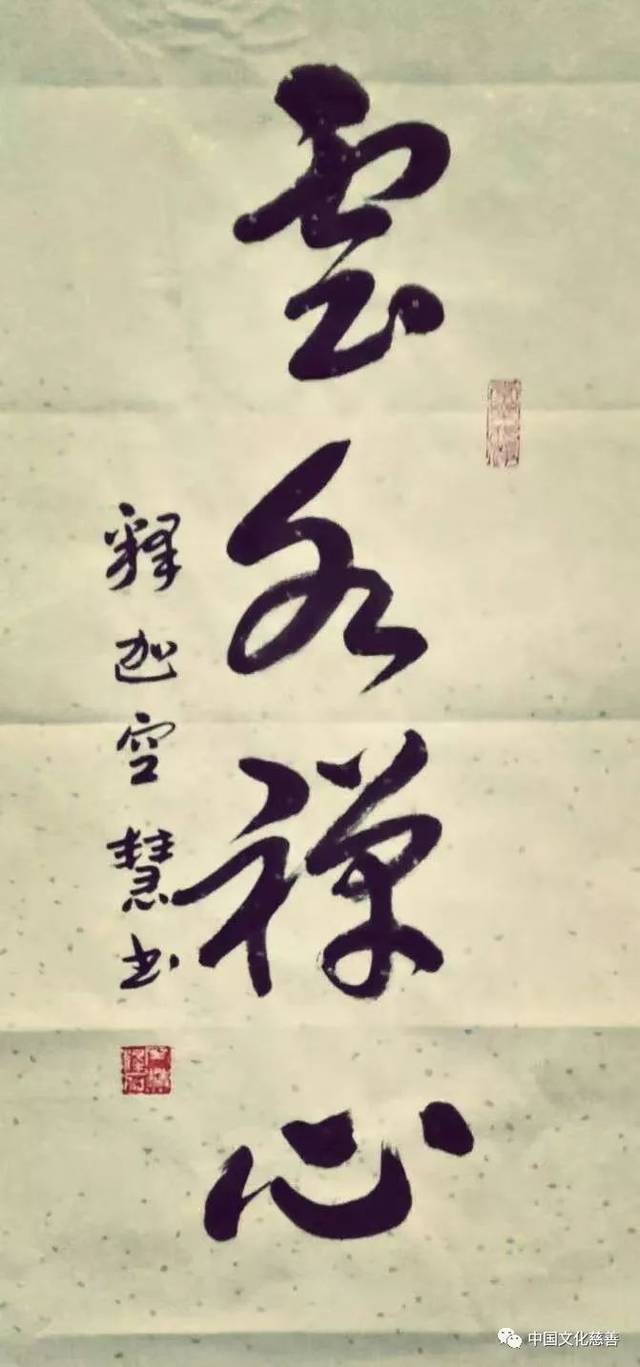 雲水禅心
釋迦空慧书
中国文化慈善